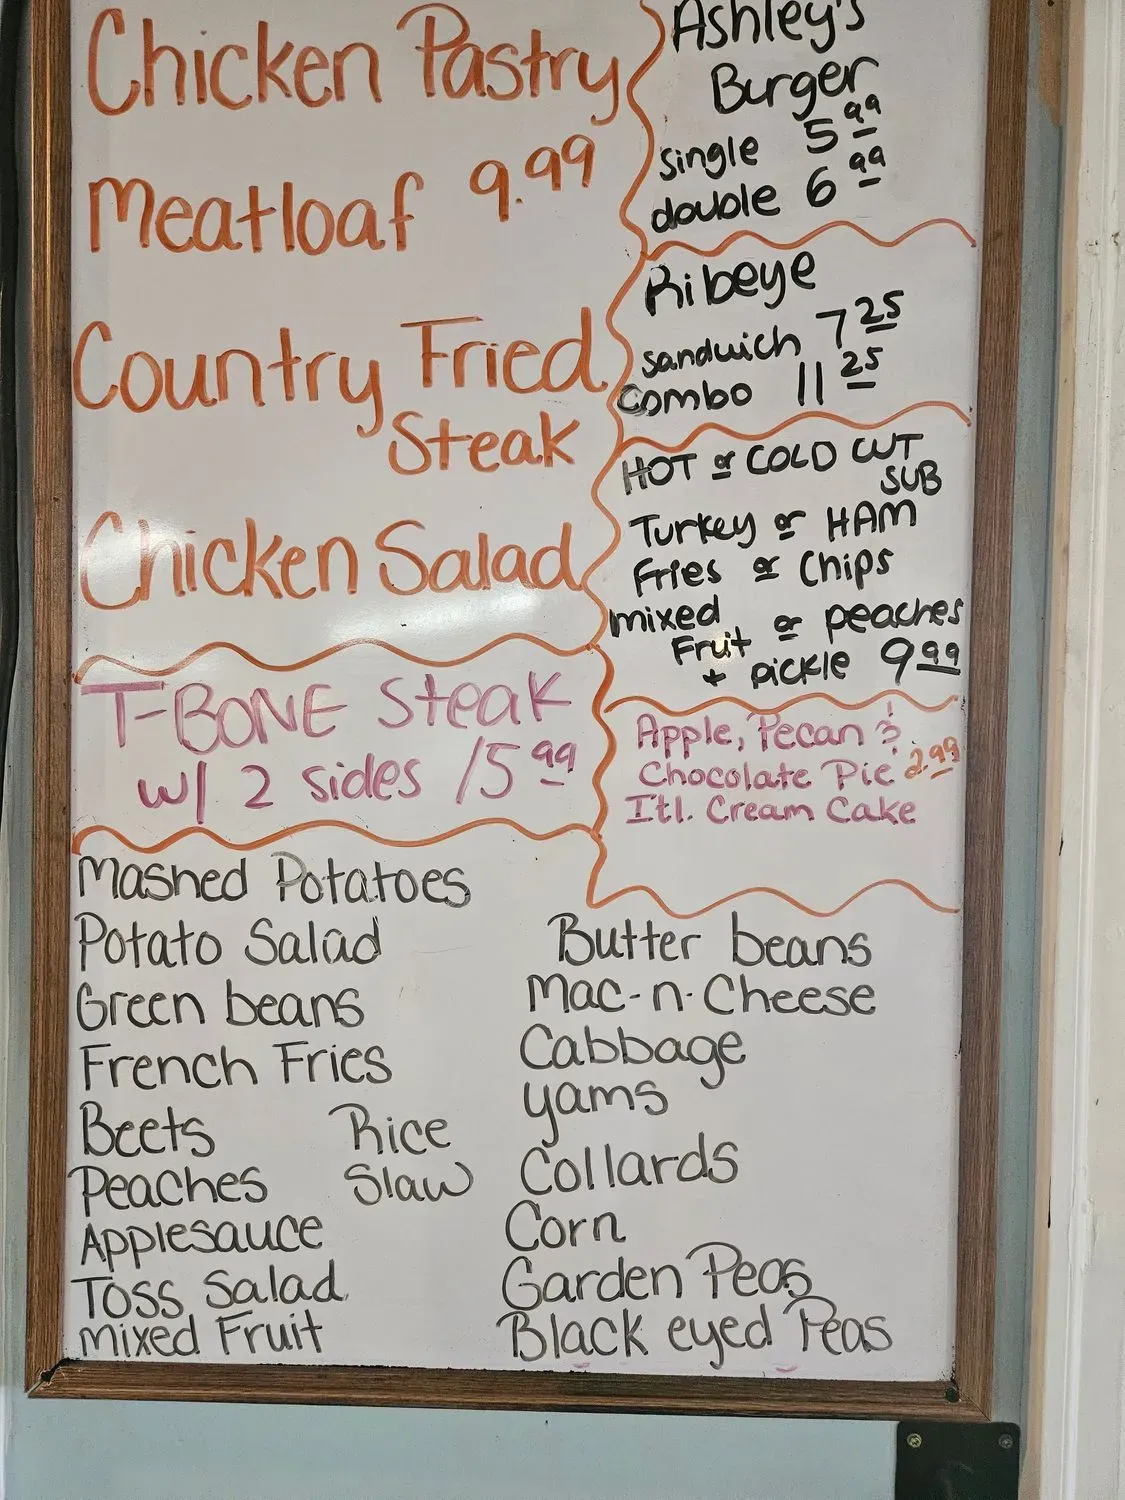 Chicken Pastry
Meatloaf 9.99
Country Fried
Steak
Chicken Salad
T-BONE Steak
w/ 2 sides 15 99
Ashley's
Burger
single 5 99
double 6 99
Ribeye
sandwich 7 25
Combo 11 25
HOT or COLD CUT
SUB
Turkey or HAM
Fries or Chips
mixed
Fruit or peaches
+ pickle 9 99
Apple, Pecan &
Chocolate Pie 2.99
Itl. Cream Cake
Mashed Potatoes
Potato Salad
Green beans
French Fries
Beets Rice
Peaches Slaw
Applesauce
Toss Salad
mixed Fruit
Butter beans
Mac-n-Cheese
Cabbage
yams
Collards
Corn
Garden Peas
Black eyed Peas